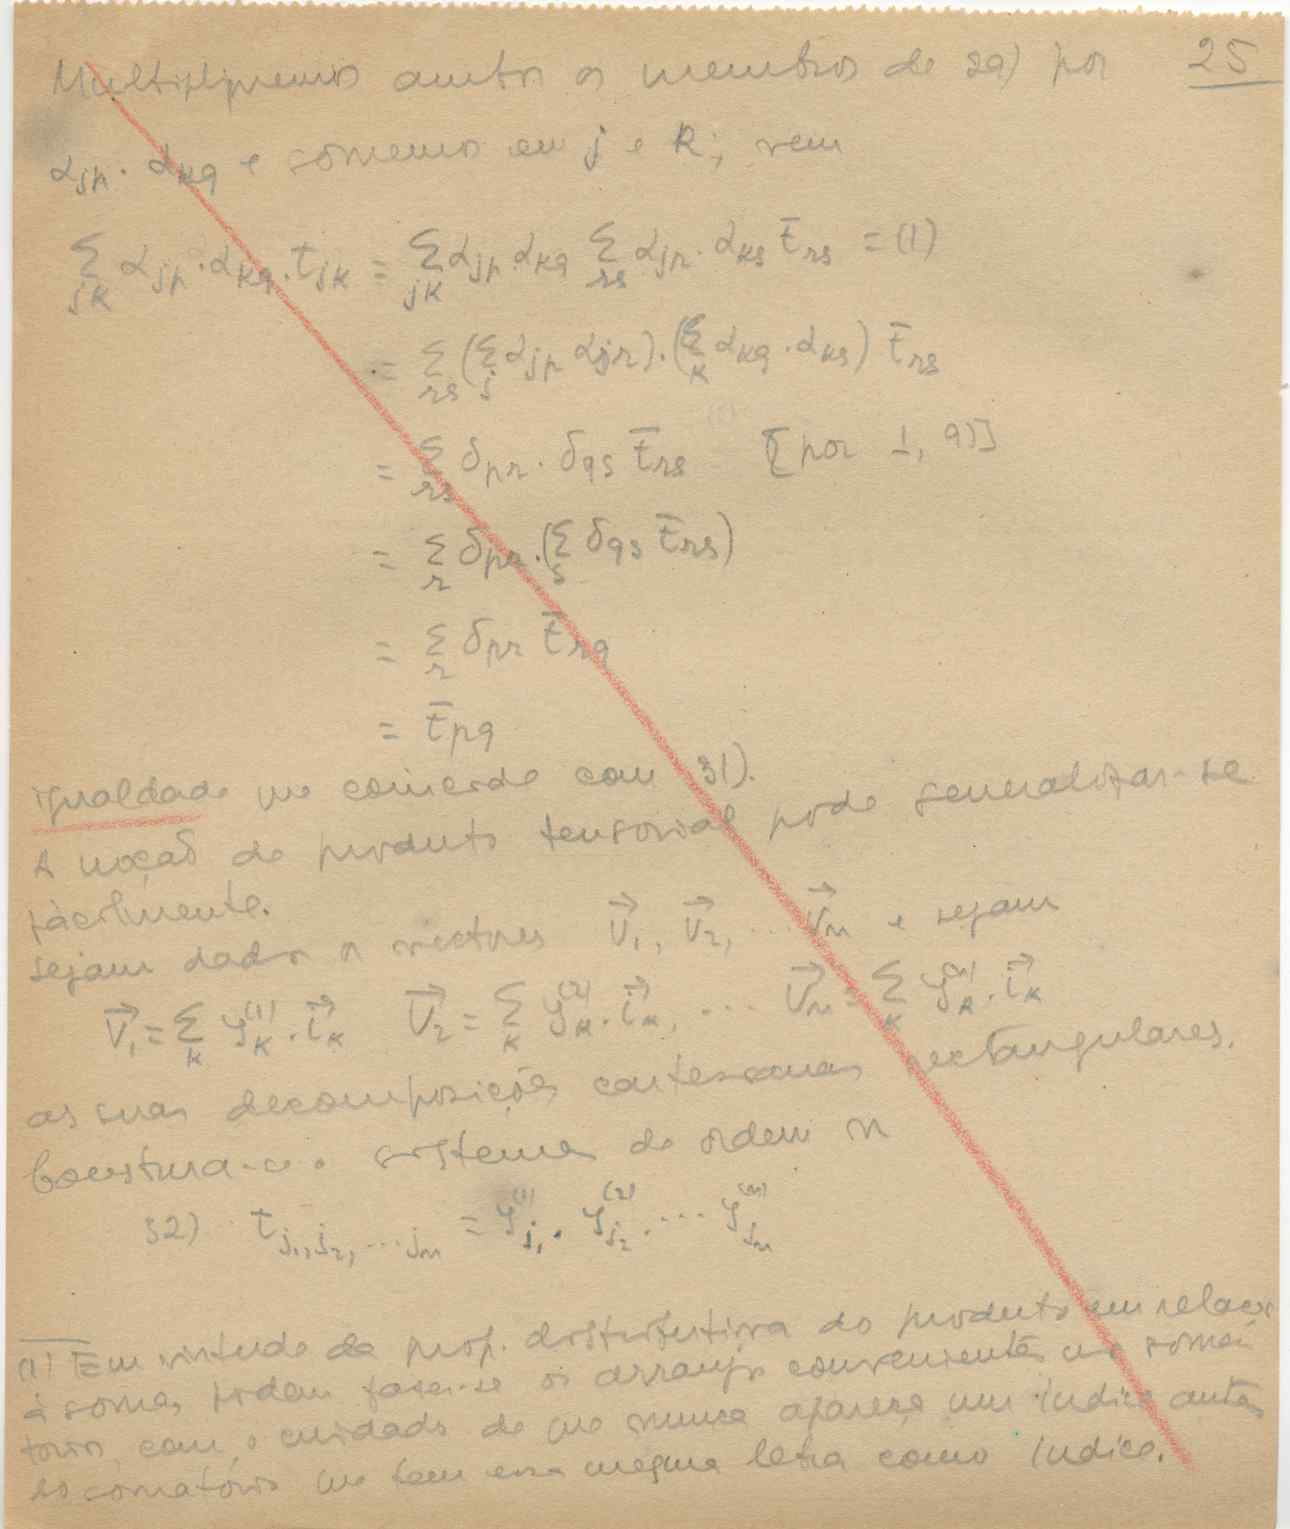 Multipliquemos ambos os membros de 29) por 25
αjp · αkq e somemos em j e k; vem
Σjk αjp · αkq · tjk = Σjk αjp αkq Σrs αjr · αks t̄rs = (1)
= Σrs (Σj αjp αjr) · (Σk αkq · αks) t̄rs
= Σrs δpr · δqs t̄rs [por 1, 9)]
= Σr δpr · (Σs δqs t̄rs)
= Σr δpr t̄rq
= t̄pq
igualdade que coincide com 31).
A noção de produto tensorial pode generalizar-se
facilmente.
Sejam dados os vectores V⃗1, V⃗2, ... V⃗n e sejam
V⃗1 = Σk yk(1) · i⃗k V⃗2 = Σk yk(2) · i⃗k, ... V⃗n = Σk yk(n) · i⃗k
as suas decomposições cartesianas rectangulares.
Construa-se o sistema de ordem n
32) tj1,j2,...jn = yj1(1) · yj2(2) · ... yjn(n)
(1) Em virtude da prop. distributiva do produto em relação
à soma, podem fazer-se os arranjos convenientes nos soma-
tórios, com o cuidado de que nunca apareça um índice antes
do somatório que tem essa mesma letra como índice.